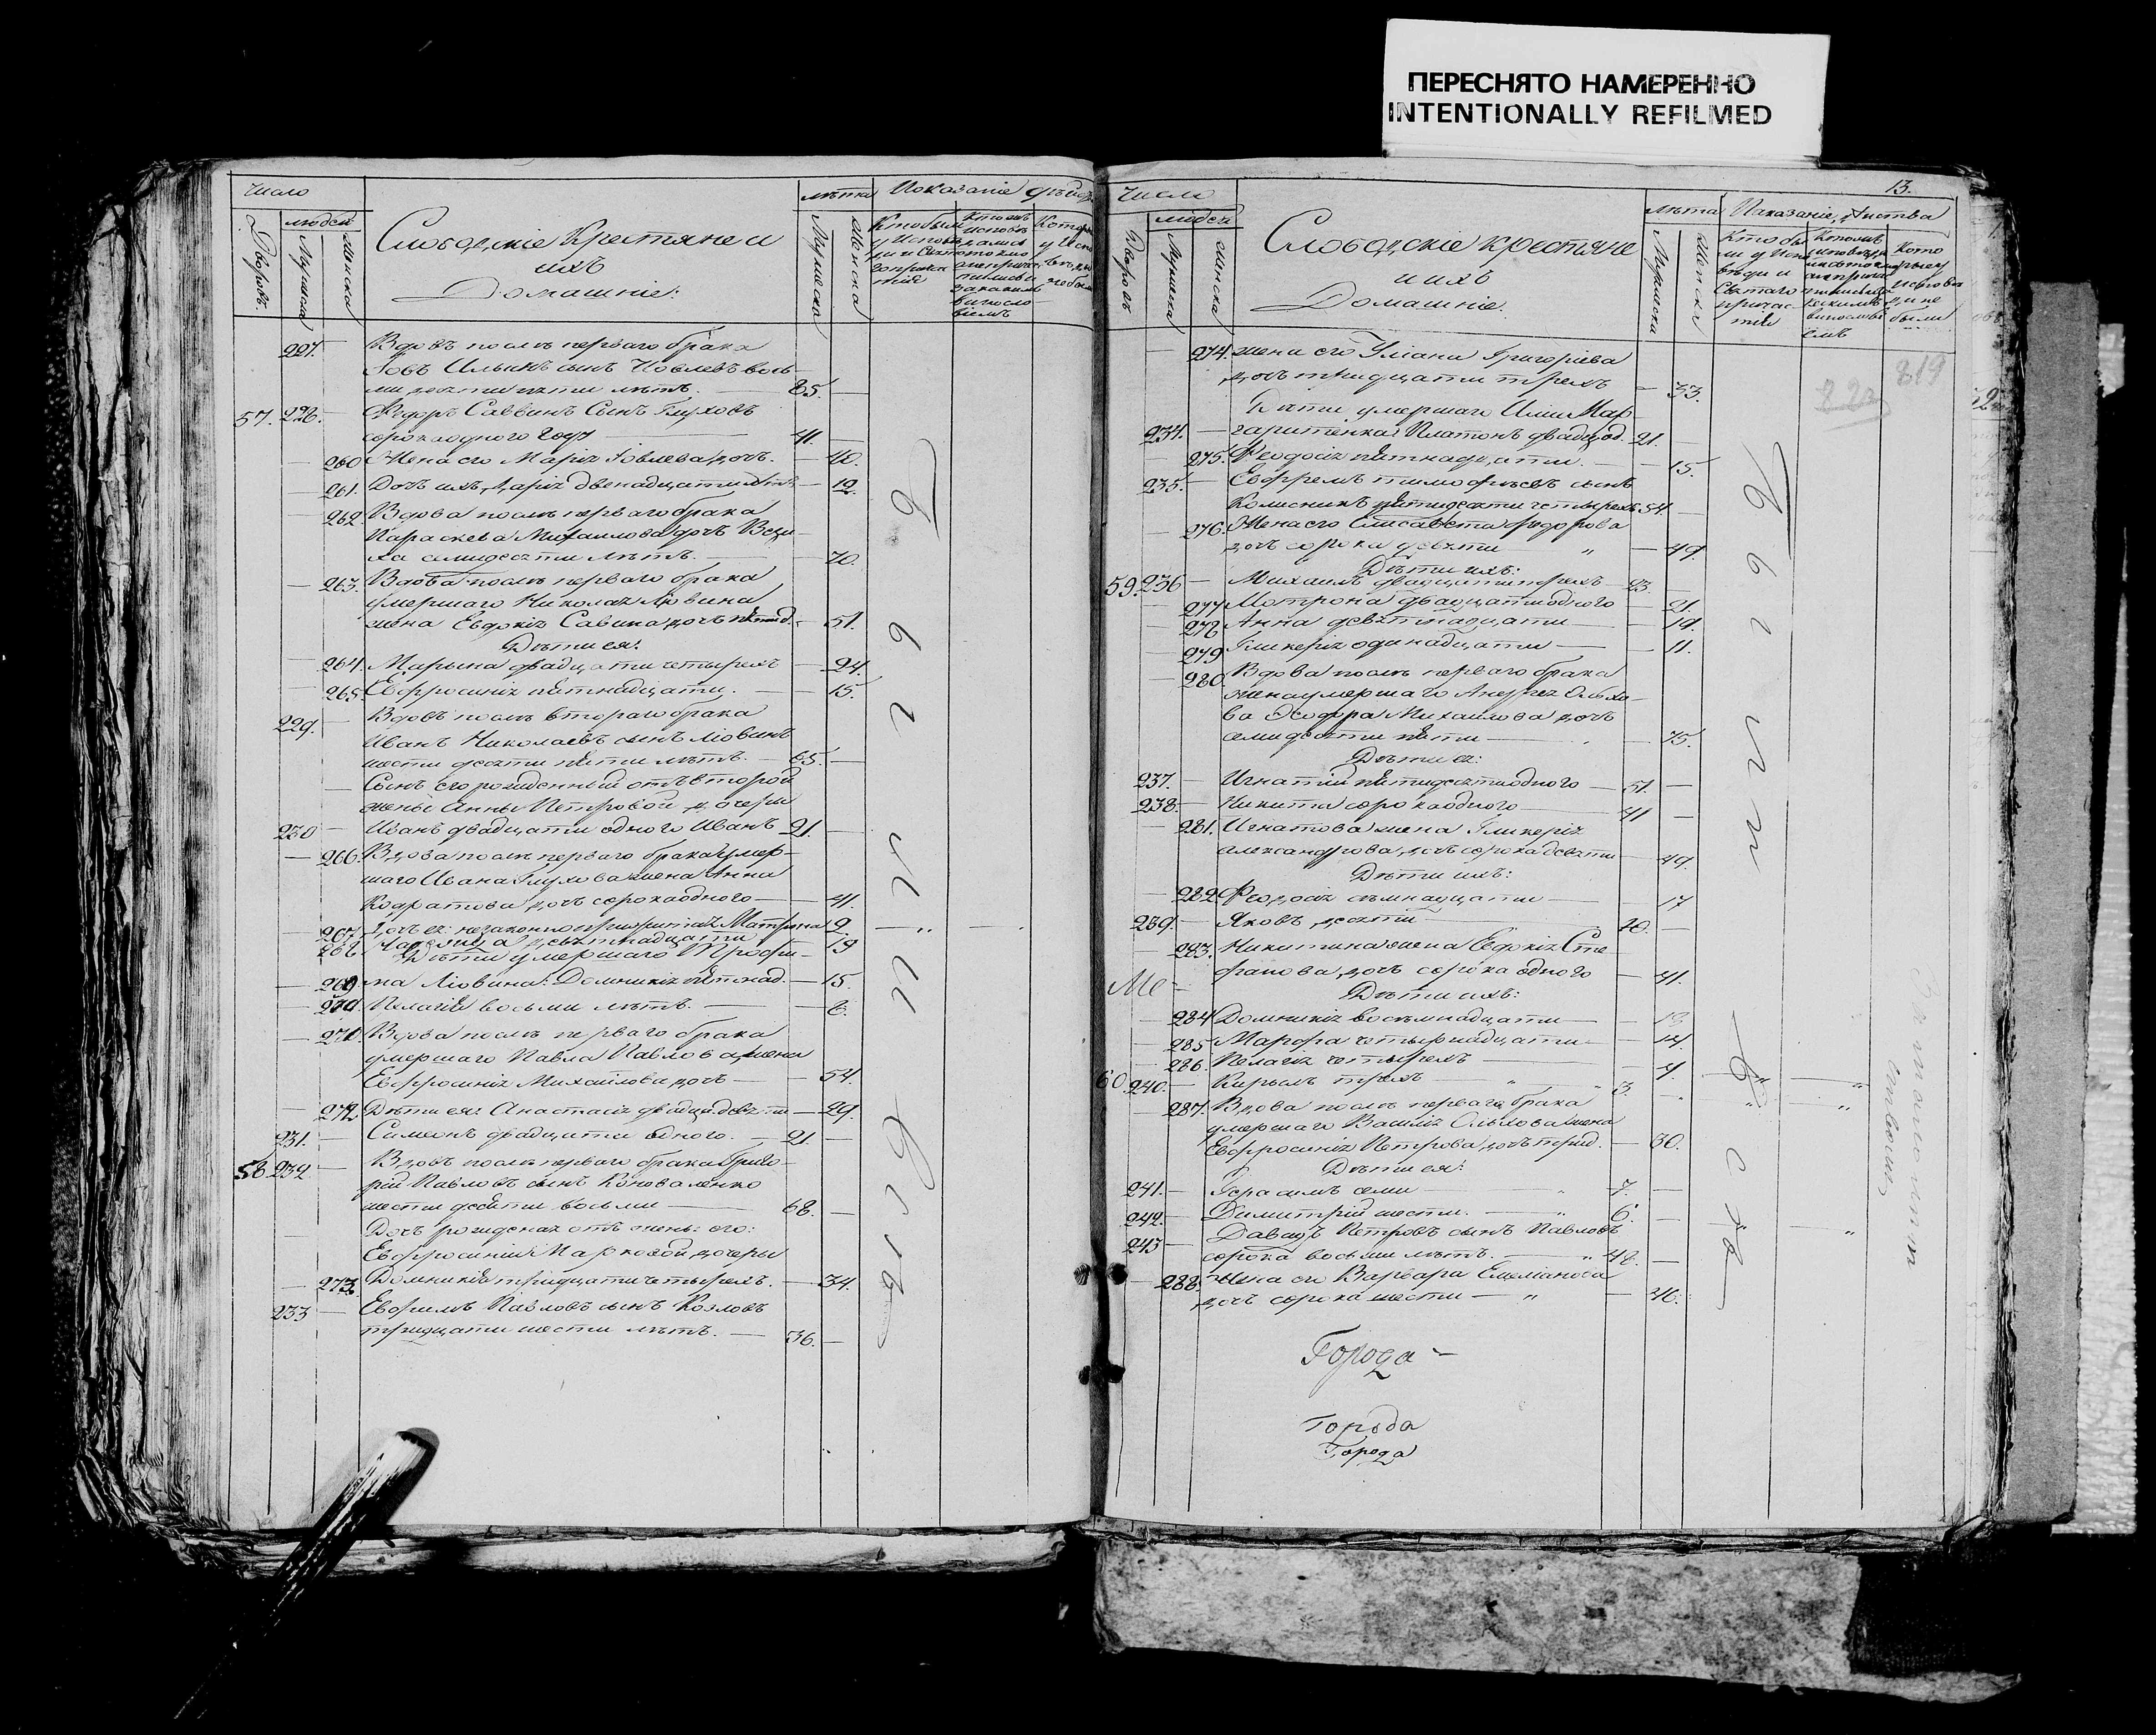 ПЕРЕСНЯТО НАМЕРЕННО
INTENTIONALLY REFILMED
Число
людей
Дворовъ.
Мужеска
женска
Слободскіе Крестьяне и
ихъ
Домашніе:
лѣта
Мужеска
Женска
Показаніе
227. Вдовъ послѣ перваго брака
Іовъ Ильинъ сынъ Іовлевъ вось-
ми десяти пяти лѣтъ. 85.
57. 228. Федоръ Саввинъ Сынъ Глуховъ
сорока одного году 41.
260 Жена его Марія Іовлева дочь. 40.
261. Дочь ихъ Дарія двенадцати лѣтъ 12.
262. Вдова послѣ перваго брака
Параскева Михайлова дочь
ха семидесяти лѣтъ. 70.
263. Вдова послѣ перваго брака
умершаго Николая Лювина
жена Евдокія Савина дочь 51.
Дѣти ея:
264. Марьяна двадцати четырехъ 24.
265. Евфросинія пятнадцати. 15.
229. Вдовъ послѣ втораго брака
Иванъ Николаевъ сынъ Лювинъ
шести десяти пяти лѣтъ. 65.
Сынъ его рожденный отъ второй
жены Анны Петровой дочери
230 Иванъ двадцати одного Иванъ 21.
266. Вдова послѣ перваго брака умер-
шаго Ивана Глухова жена Анна
Кодратова дочь сорока одного 41.
267. Дочь ея незаконно прижитая Матрона 2.
268. девятнадцати 19
Дѣти умершаго Трофи-
269 ма Лювина: Домникія пятнад. 15.
270. Пелагія восьми лѣтъ. 8.
271. Вдова послѣ перваго брака
умершаго Павла Павлова жена
Евфросинія Михайлова дочь 54.
272. Дѣти ея: Анастасія двадц. девяти 29.
231. Симеонъ двадцати одного. 21.
58 232. Вдовъ послѣ перваго брака Григо-
рій Павловъ сынъ Коноваленко
шести десяти восьми 68.
Дочь рожденая отъ жены его:
Евфросиніи Марковой дочеры
273. Домникія тридцати четырехъ. 34.
233 Евфимъ Павловъ сынъ Козловъ
тридцати шести лѣтъ. 36.
13.
Число
людей
Дворовъ
Мужеска
женска
Слободскіе крестьяне
и ихъ
Домашніе.
лѣта
Мужеска
Женска
819
274. жена его Уліана Григоріева
дочь тридцати трехъ 33.
Дѣти умершаго Иліи Мар-
234. гаритенка Платонъ двадц. од. 21.
275. Феодосія пятнадцати. 15.
235. Ефремъ Тимофѣевъ сынъ
Колисникъ пятидесяти четырехъ 54.
276. Жена его Елисавета Федорова
дочь сорока девяти 49.
Дѣти ихъ:
59. 236 Михаилъ двадцати трехъ 23.
277 Мотрона двадцати одного 21.
278 Анна девятнадцати 19.
279 Гликерія одинадцати 11.
280. Вдова послѣ перваго брака
жена умершаго Андрея Ольхо-
ва Феодора Михайлова дочь
семидесяти пяти 75.
Дѣти ея:
237. Игнатій пятидесяти одного 51.
238. Никита сорока одного 41
281. Игнатова жена Гликерія
александрова дочь сорока девяти 49.
Дѣти ихъ:
282. Феодосія семнадцати 17
239. Яковъ десяти 10.
283. Никитина жена Евдокія Сте-
фанова дочь сорока одного 41.
Дѣти ихъ:
284 Домникія восемнадцати 18
285 Марфа четырнадцати 14.
286. Пелагія четырехъ 4.
60 240. Кирилъ трехъ 3.
287. Вдова послѣ перваго брака
умершаго Василія Ольхова жена
Евфросинія Петрова дочь 30.
Дѣти ея:
241. Герасимъ семи 7.
242. Димитрій шести. 6.
243 Давидъ Петровъ сынъ Павловъ
сорока восьми лѣтъ. 48.
288. Жена его Варвара Емеліанова
дочь сорока шести 46.
Города
Города
Города